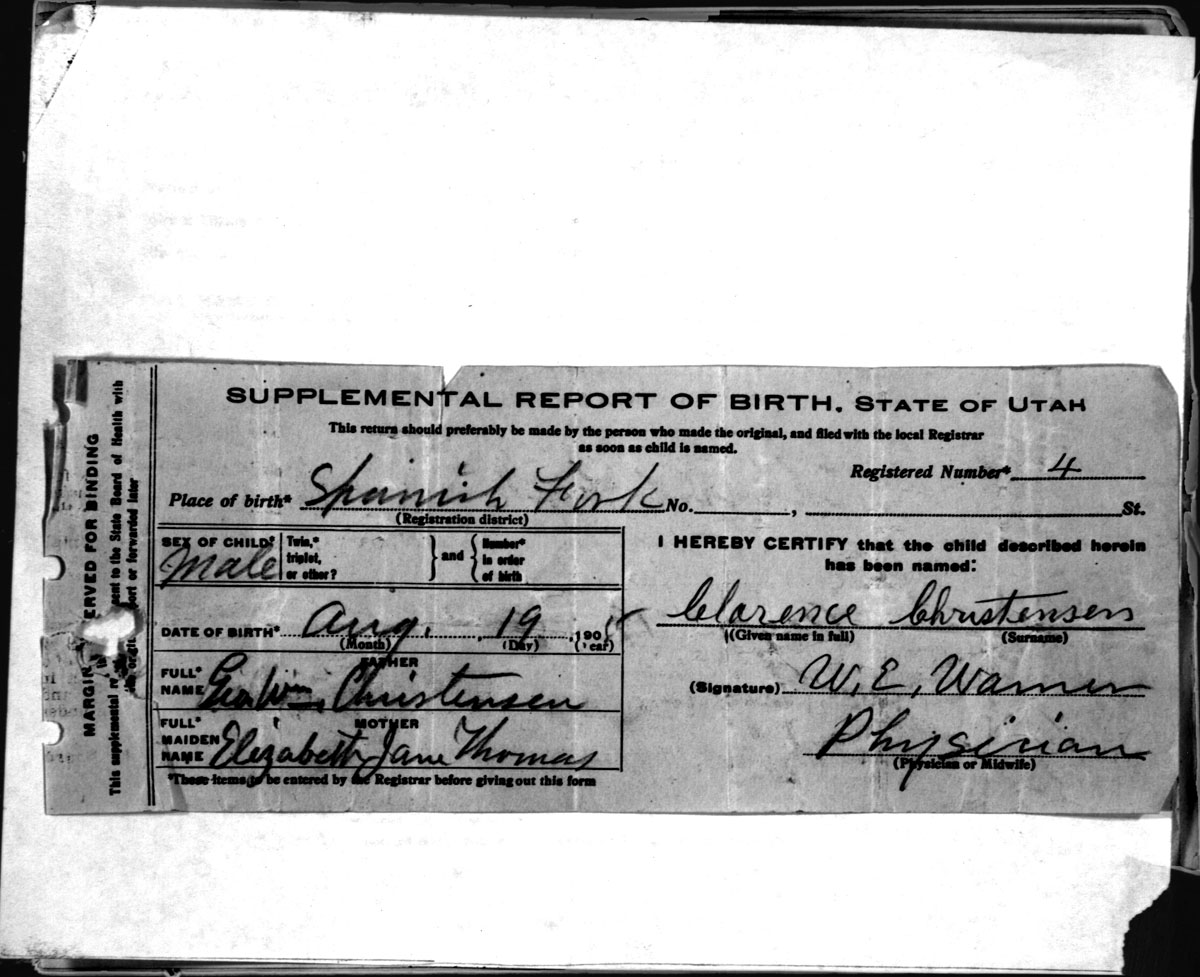 SUPPLEMENTAL REPORT OF BIRTH. STATE OF UTAH
This return should preferably be made by the person who made the original, and filed with the local Registrar
as soon as child is named.
Registered Number* 4
Place of birth* Spanish Fork No. , St.
(Registration district)
SEX OF CHILD* Male
Twin,* triplet, or other? } and { Number* in order of birth
DATE OF BIRTH* Aug. , 19 , 190
(Month) (Day) (Year)
FATHER
FULL* NAME Geo Wm. Christensen
MOTHER
FULL* MAIDEN NAME Elizabeth Jane Thomas
*These items to be entered by the Registrar before giving out this form
I HEREBY CERTIFY that the child described herein
has been named:
Clarence Christensen
(Given name in full) (Surname)
(Signature) W. E. Warner
Physician
(Physician or Midwife)
MARGIN RESERVED FOR BINDING
This supplemental sent to the State Board of Health with
or forwarded later